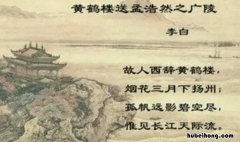 黄鹤楼送孟浩然之广陵
李白
故人西辞黄鹤楼，
烟花三月下扬州；
孤帆远影碧空尽，
惟见长江天际流。
hubeihong.com